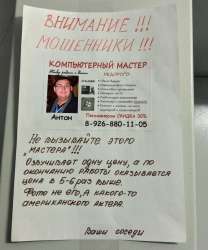 ВНИМАНИЕ !!!
МОШЕННИКИ !!!
КОМПЬЮТЕРНЫЙ МАСТЕР
НЕДОРОГО
Антон
Пенсионерам СКИДКА 30%
8-926-880-11-05
Не вызывайте этого
"мастера"!!!
Озвучивает одну цену, а по
окончанию работы оказывается
цена в 5-6 раз выше.
Фото не его, а какого-то
американского актера.
Ваши соседи